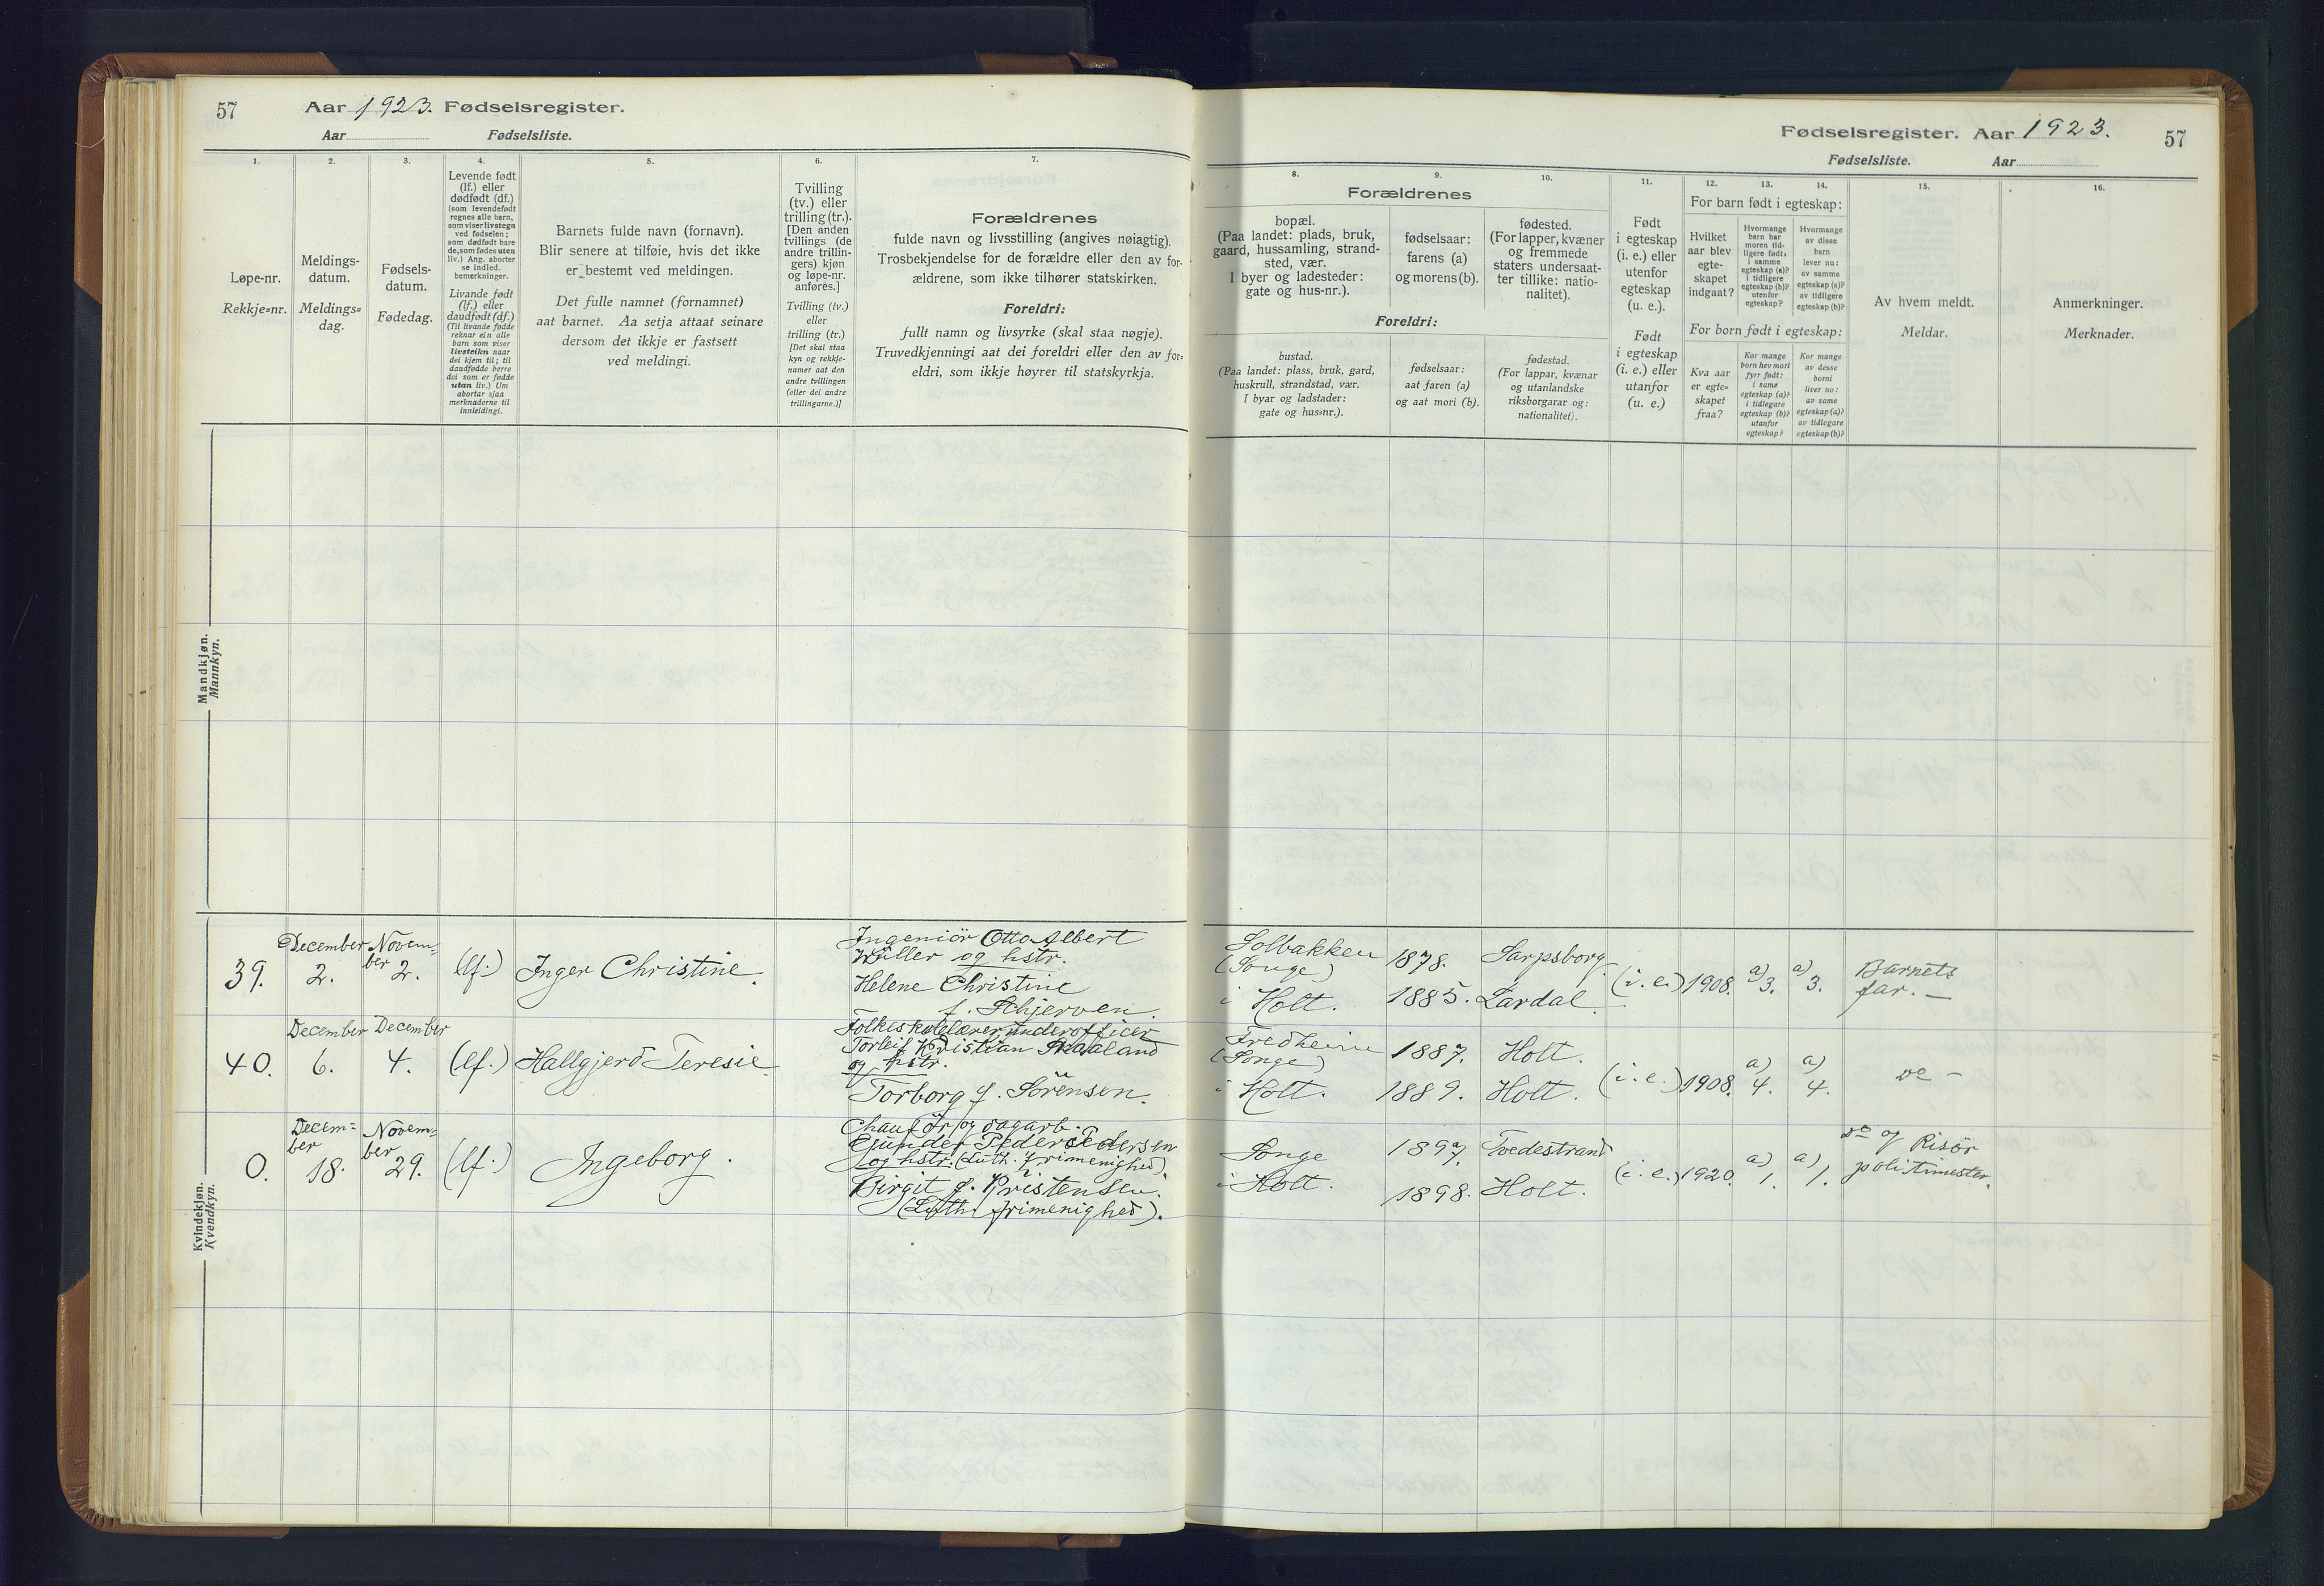 57
Aar 1923. Fødselsregister.
Aar Fødselsliste.
1.
2.
3.
4.
5.
6.
7.
Løpe-nr.
Rekkje=nr.
Meldings-
datum.
Meldings=
dag.
Fødsels-
datum.
Fødedag.
Levende født
(lf.) eller
dødfødt (df.)
(som levendefødt
regnes alle barn,
som viser livstegn
ved fødselen;
som dødfødt bare
de, som fødes uten
liv.) Ang. aborter
se indled.
bemerkninger.
Livande født
(lf.) eller
daudfødt (df.)
(Til livande fødde
reknar ein alle
barn som viser
livsteikn naar
dei kjem til; til
daudfødde berre
dei som er fødde
utan liv.) Um
abortar sjaa
merknaderne til
innleidingi.
Barnets fulde navn (fornavn).
Blir senere at tilføie, hvis det ikke
er bestemt ved meldingen.
Det fulle namnet (fornamnet)
aat barnet. Aa setja attaat seinare
dersom det ikkje er fastsett
ved meldingi.
Tvilling
(tv.) eller
trilling (tr.).
[Den anden
tvillings (de
andre trillin-
gers) kjøn
og løpe-nr.
anføres.]
Tvilling (tv.)
eller
trilling (tr.)
[Det skal staa
kyn og rekkje-
numer aat den
andre tvillingen
(eller dei andre
trillingarne.)]
Forældrenes
fulde navn og livsstilling (angives nøiagtig).
Trosbekjendelse for de forældre eller den av for-
ældrene, som ikke tilhører statskirken.
Foreldri:
fullt namn og livsyrke (skal staa nøgje).
Truvedkjenningi aat dei foreldri eller den av for=
eldri, som ikkje høyrer til statskyrkja.
Mandkjøn.
Mannkyn.
Kvindekjøn.
Kvendkyn.
39.
December
2.
Novem-
ber 2.
(lf.)
Inger Christine.
Ingeniör Otto Albert
Wüller og hstr.
Helene Christine
f. Schjerven.
40.
December
6.
December
4.
(lf.)
Hallgjerd Teresie.
Folkeskolelærer, underofficer
Torleif Kristian Skaaland
og hstr.
Torborg f. Sörensen.
0.
Decem=
ber
18.
Novem=
ber
29.
(lf.)
Ingeborg.
Chauför og dagarb.
Gunder Peder Pedersen
og hstr. (Luth. Frimenighed)
Birgit f. Kristensen.
(Luth. frimenighed).
Fødselsregister. Aar 1923.
57
Fødselsliste. Aar
8.
9.
10.
11.
12.
13.
14.
15.
16.
Forældrenes
bopæl.
(Paa landet: plads, bruk,
gaard, hussamling, strand-
sted, vær.
I byer og ladesteder:
gate og hus-nr.).
fødselsaar:
farens (a)
og morens (b).
fødested.
(For lapper, kvæner
og fremmede
staters undersaat-
ter tillike: natio-
nalitet).
Foreldri:
bustad.
(Paa landet: plass, bruk, gard,
huskrull, strandstad, vær.
I byar og ladstader:
gate og hus=nr.).
fødselsaar:
aat faren (a)
og aat mori (b).
fødestad.
(For lappar, kvænar
og utanlandske
riksborgarar og:
nationalitet).
Født
i egteskap
(i. e.) eller
utenfor
egteskap
(u. e.).
Født
i egteskap
(i. e.) eller
utanfor
(u. e.)
For barn født i egteskap:
Hvilket
aar blev
egte-
skapet
indgaat?
Hvormange
barn har
moren tid-
ligere født:
i samme
egteskap (a)?
i tidligere
egteskap (b)?
utenfor
egteskap?
Hvormange
av disse
barn
lever nu:
av samme
egteskap (a)?
av tidligere
egteskap (b)?
For born født i egteskap:
Kva aar
er egte=
skapet
fraa?
Kor mange
born hev mori
fyrr født:
i same
egteskap (a)?
i tidlegare
egteskap (b)?
utanfor
egteskap?
Kor mange
av desse
borni
liver no:
av same
egteskap (a)?
av tidlegare
egteskap (b)?
Av hvem meldt.
Meldar.
Anmerkninger.
Merknader.
Solbakken
(Songe)
i Holt.
1878.
1885.
Sarpsborg.
Lardal.
(i. e.)
1908.
a) 3.
a) 3.
Barnets
far. —
Fredheim
(Songe)
i Holt.
1887.
1889.
Holt.
Holt.
(i. e.)
1908.
a) 4.
a) 4.
do —
Songe
i Holt.
1897.
1898.
Tvedestrand
Holt.
(i. e.)
1920.
a) 1.
a) 1.
do og Risör
politimester.